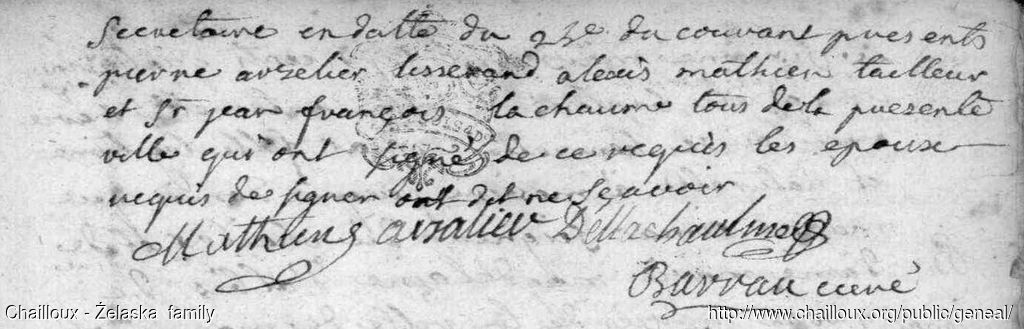 Secretaire en datte du 23e du couvant presents
pierre arzelier tisserand alexis mathieu tailleur
et Sr jean françois lachaume tous de la presente
ville qui ont signé de ce requis les epoux
requis de signer ont dit ne sçavoir
Mathieu arzalier
Barrau curé
Chailloux - Żelaska family
http://www.chailloux.org/public/geneal/